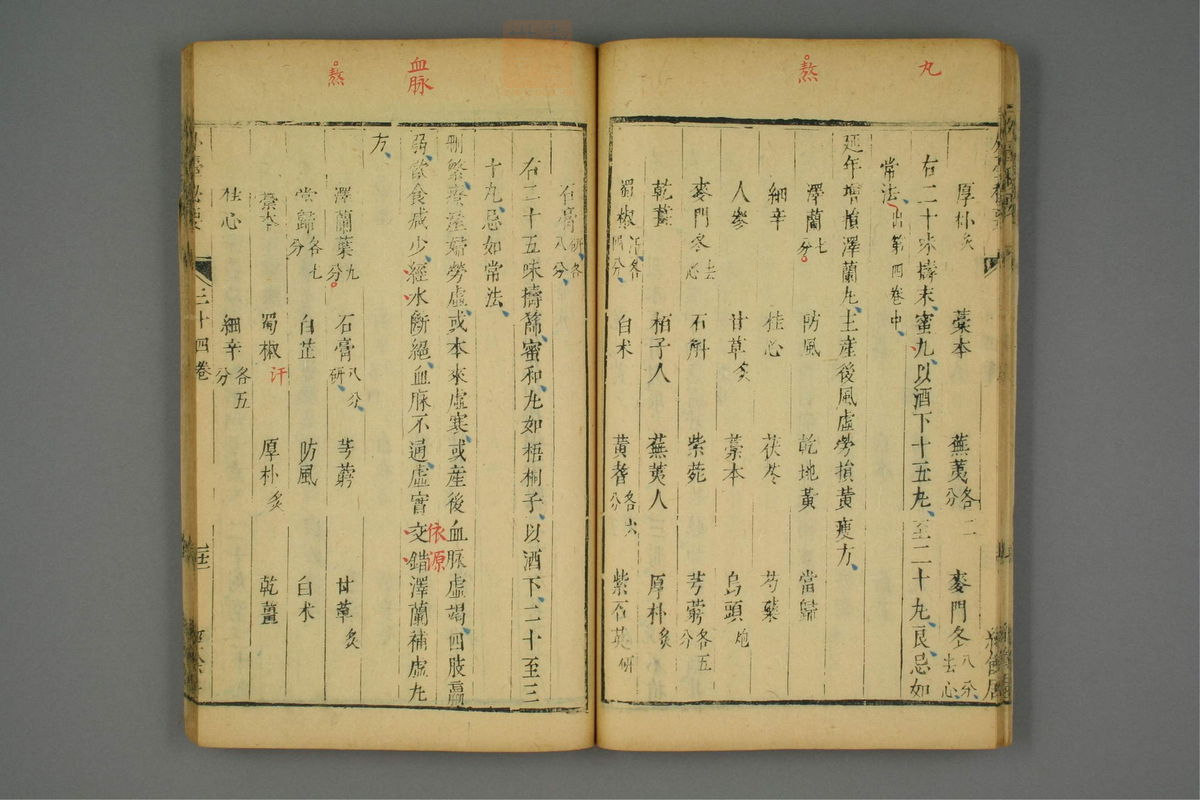 丸
熬
厚朴炙 藁本 蕪荑各二分 麥門冬八分去心
右二十味擣末蜜丸以酒下十五丸至二十丸良忌如
常法出第四卷中
延年增損澤蘭丸主產後風虛勞損黃瘦方
澤蘭七分 防風 乾地黃 當歸
細辛 桂心 茯苓 芍藥
人參 甘草炙 藁本 烏頭炮
麥門冬去心 石斛 紫菀 芎藭各五分
乾薑 栢子人 蕪荑人 厚朴炙
蜀椒汗各四分 白朮 黃耆各六分 紫石英研
血脉
熬
石膏研各八分
右二十五味擣篩蜜和丸如梧桐子以酒下二十至三
十丸忌如常法
刪繁療產婦勞虛或本來虛寒或產後血脉虛竭四肢羸
弱飲食减少經水斷絕血脉不通虛實交錯澤蘭補虛丸
依源
方
澤蘭葉九分 石膏八分研 芎藭 甘草炙
當歸各七分 白芷 防風 白朮
藁本 蜀椒汗 厚朴炙 乾薑
桂心 細辛各五分
三十四卷